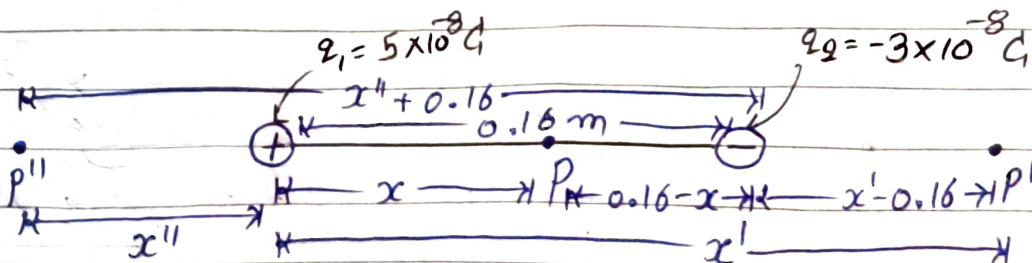 q₁ = 5×10⁻⁸ C q₂ = -3×10⁻⁸ C
x" + 0.16
0.16 m
+ −
P" x P 0.16-x x'-0.16 P'
x" x'